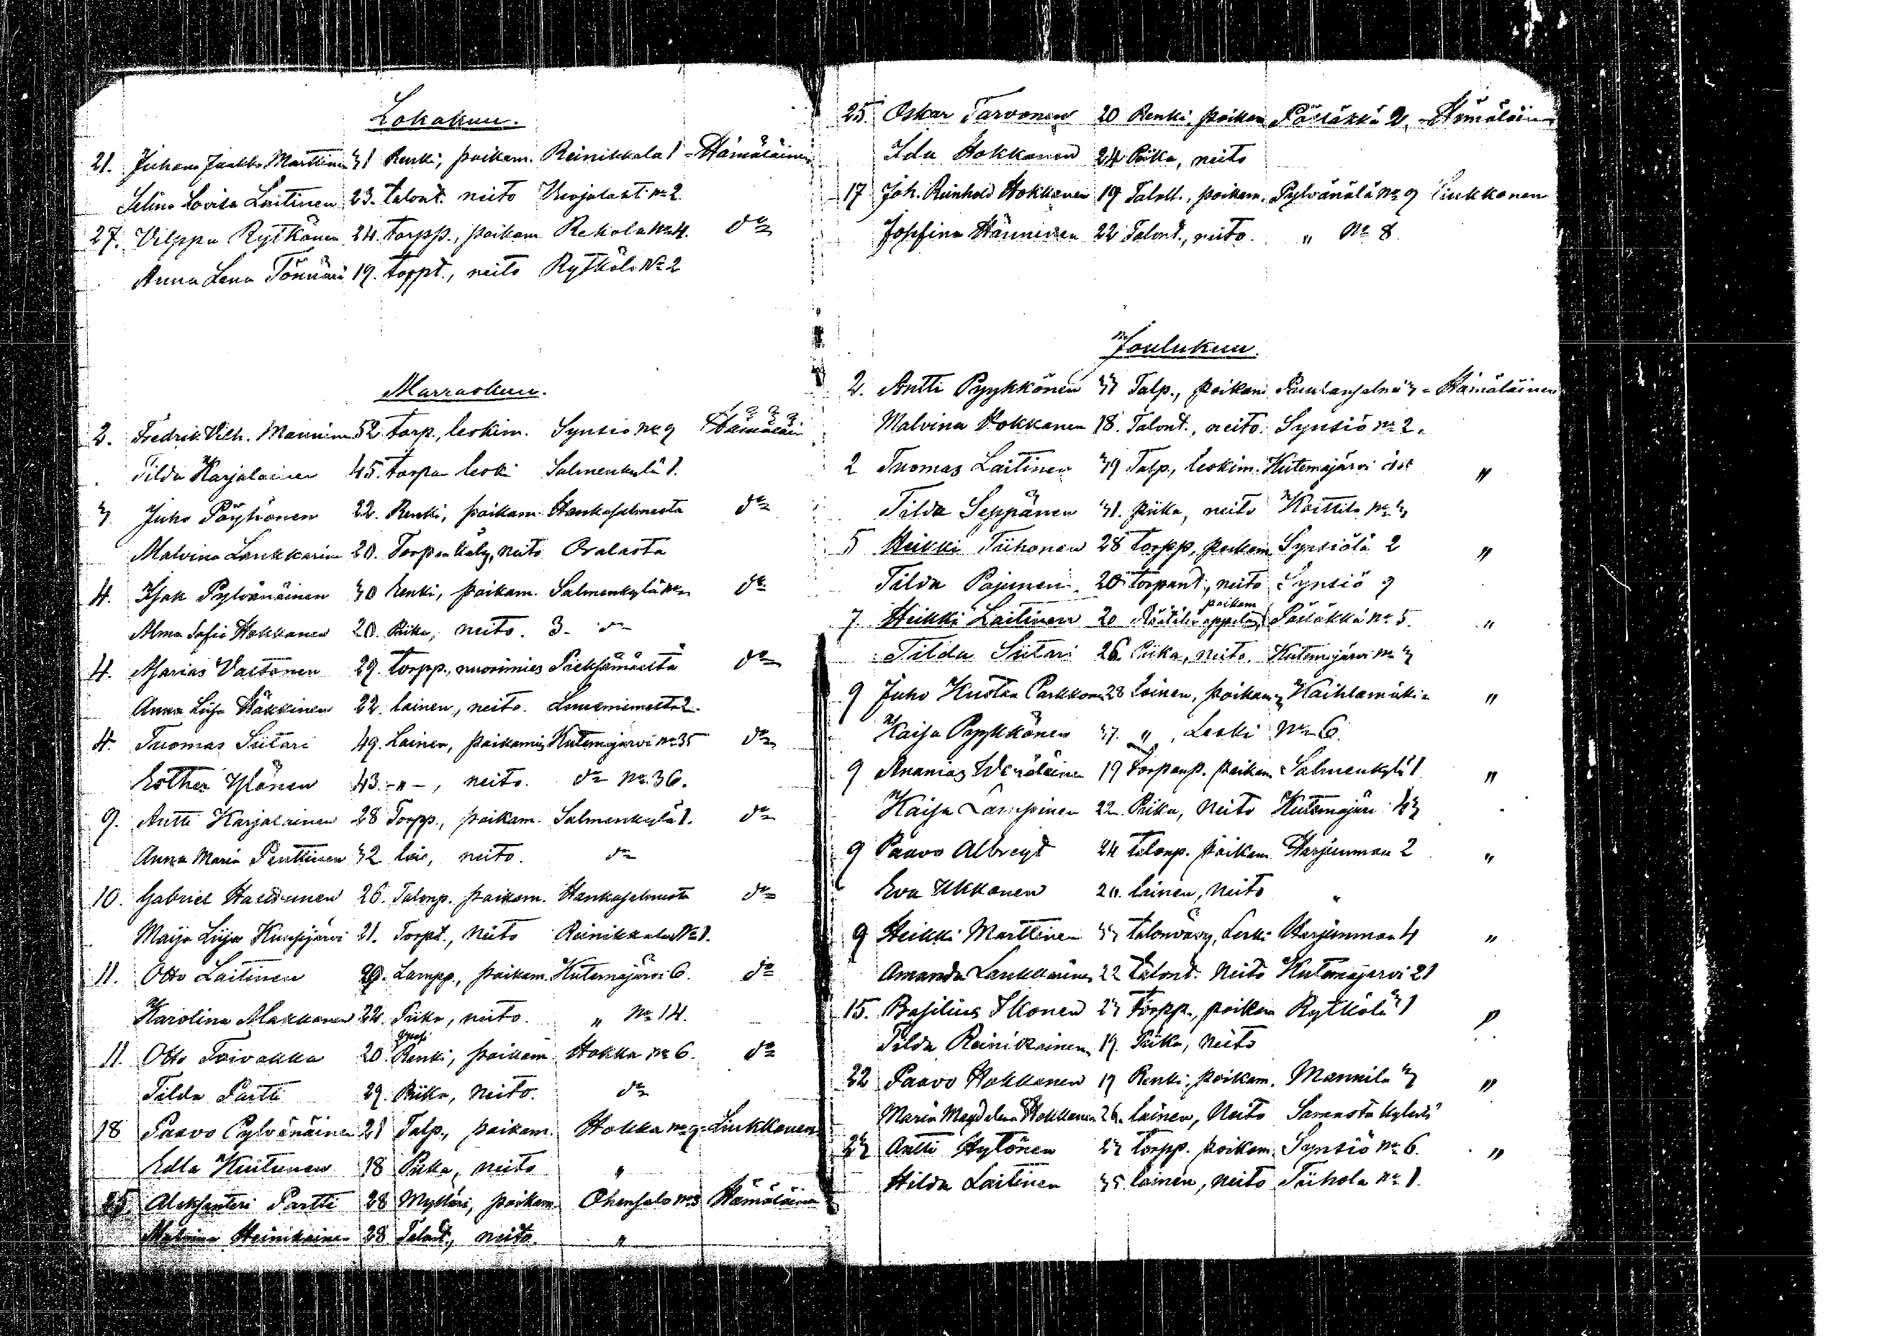 Lokakuu.
21. Juhana Jaakko Marttinen 31 Renki, poikam. Reinikkala 1 - Hämäläinen
Selina Lovisa Laitinen 23. talont. neito Kuojalaht No 2.
27. Vilppu Rytkönen 24. torpp., poikam Rekola No 4. do
Anna Lena Tönnäri 19. torpt., neito Rytkölä No 2
Marraskuu.
2. Fredrik Vilh. Manninen 52 torp, leskim. Synsiö No 9 Hämäläin
Tilda Karjalainen 45. torpan leski Salmenkylä 1.
3 Juho Pöyhönen 22. Renki, poikam. Hankasalmesta do
Malvina Laukkarinen 20. Torpan käly, neito Oralasta
4. Isak Pylvänäinen 30 Renki, poikam. Salmenkylä No do
Alma Sofia Hokkanen 20. Piika, neito. 3. do
4. Marias Valtonen 29. torpp., nuorimies Pieksämäeltä do
Anna Liisa Häkkinen 22. loinen, neito.
4. Tuomas Siitari 49. Loinen, poikamies Kutemajärvi No 35 do
Esther Ylönen 43. -"-, neito. do No 36.
9. Antti Karjalainen 28 Torpp., poikam. Salmenkylä 1. do
Anna Maria Penttinen 32 loi, neito. do
10. Gabriel 26. Talonp. poikam. Hankasalmesta do
Maija Liisa Kuusijärvi 21. Torpt., neito Reinikkala No 1.
11. Otto Laitinen 29. Lampp., poikam. Kutemajärvi 6. do
Karolina Makkonen 22. Piika, neito. " No 14.
11. Otto Toivakka 20. Renki, poikam Hokka No 6. do
Tilda Partti 29. Piika, neito. do
18 Paavo Pylvänäinen 21 Talp., poikam. Hokka No 9 - Liukkonen
Edla Kiitunen 18 Piika, neito "
25 Aleksanteri Partti 28 Mylläri, poikam. Ohensalo No 3 Hämäläinen
Malvina Heinikainen 28 Talont., neito. "
25 Oskar Tarvonen 20 Renki, poikam Pölläkkä 2, - Hämäläinen
Ida Hokkanen 24 Piika, neito
17 Joh. Reinhold Hokkanen 19 Taloll., poikam. Pylvänälä No 9 Liukkonen
Josefina Hänninen 22 Talont., neito. " No 8.
Joulukuu.
2. Antti Pyykkönen 33 Talp., poikam - Hämäläinen
Malvina Hokkanen 18. Talont., neito. Synsiö No 2.
2 Tuomas Laitinen 39 Talp, leskim. Kutemajärvi "
Tilda Seppänen 31. piika, neito Koittila No 3
5 Heikki Tiihonen 28 torpp, poikam Synsiölä 2 "
Tilda Pajunen 20 torpant., neito Synsiö 9
7. Heikki Laitinen 20 poikam Pölläkkä No 5. "
Tilda Siitari 26 Piika, neito. Kutemajärvi No 3
9 Juho Kustaa Parkkonen 28 loinen, poikam, Kaihlamäki "
Kaisa Pyykkönen 37. ", Leski No 6.
9 Ananias Venäläinen 19 torpanp. poikam Salmenkylä 1. "
Kaisa Lampinen 22 Piika, neito Kutemajärvi 43
9 Paavo Albreyt 24 talonp. poikam. Harjunmaa 2 "
Eva Ukkonen 20. loinen, neito "
9 Heikki Marttinen 33 talonvävy, Leski Harjunmaa 4 "
Amanda Laukkarinen 22 talont. neito Kutemajärvi 21
15. Basilius Ikonen 23 torpp., poikam Rytkölä 31 "
Tilda Reinikainen 19. Piika, neito
22 Paavo Hokkanen 19 Renki, poikam. Mannila 3 "
Maria Magdalena Hokkanen 26. loinen, neito Samasta kylästä
23 Antti Hytönen 23 torpp. poikam, Synsiö No 6. "
Hilda Laitinen 35. loinen, neito Tiihola No 1.